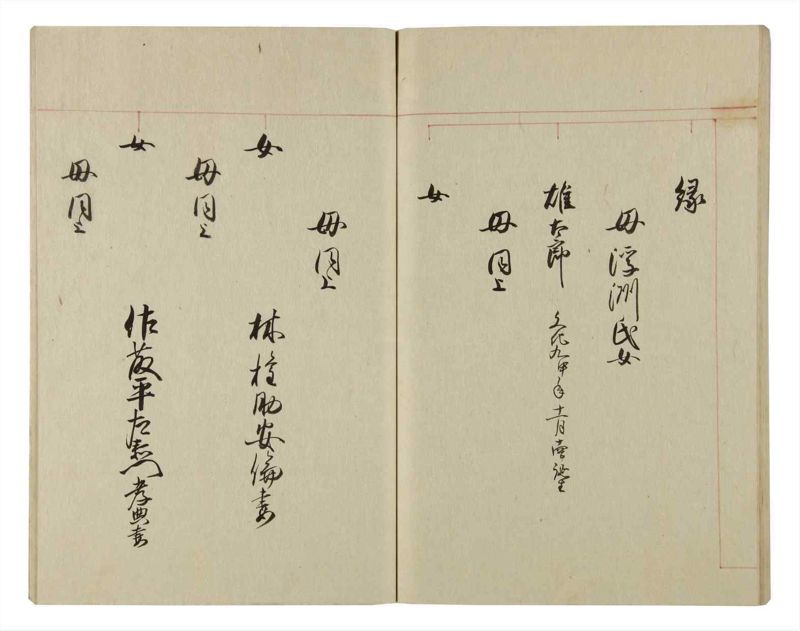 縁
母浮洲氏女
雄太郎 文化九申年十一月
母同上
女
母同上
女 林権助安備妻
母同上
女 佐藤平左衛門孝典妻
母同上